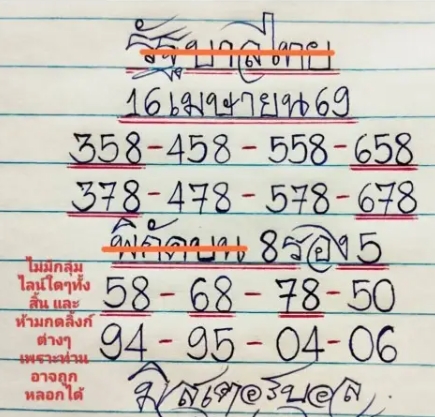 รัฐบาลไทย
16 เมษายน 69
358-458-558-658
378-478-578-678
พิกัดบน 8 รอง 5
58-68-78-50
94-95-04-06
มิสเตอร์บอล
ไม่มีกลุ่ม
ไลน์ใดๆทั้ง
สิ้น และ
ห้ามกดลิ้งก์
ต่างๆ
เพราะท่าน
อาจถูก
หลอกได้